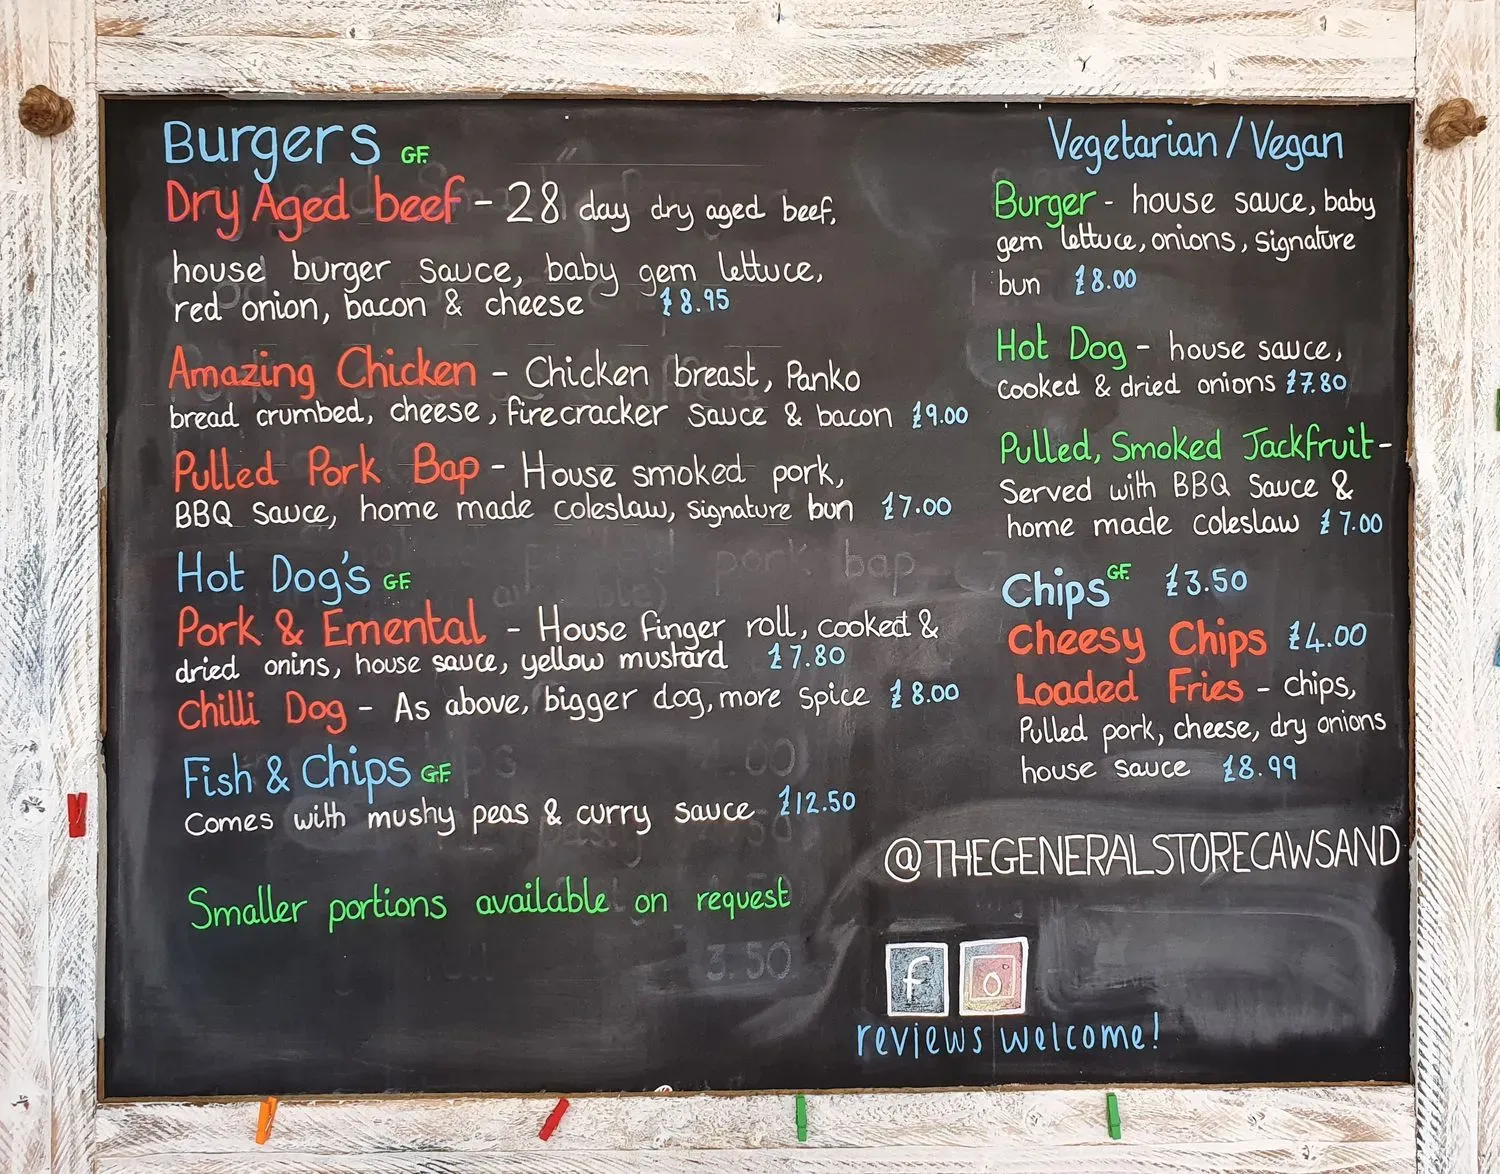 Burgers GF.
Dry Aged beef - 28 day dry aged beef,
house burger sauce, baby gem lettuce,
red onion, bacon & cheese £8.95
Amazing Chicken - Chicken breast, Panko
bread crumbed, cheese, firecracker sauce & bacon £9.00
Pulled Pork Bap - House smoked pork,
BBQ sauce, home made coleslaw, signature bun £7.00
Hot Dog's GF.
Pork & Emental - House finger roll, cooked &
dried onins, house sauce, yellow mustard £7.80
Chilli Dog - As above, bigger dog, more spice £8.00
Fish & Chips GF.
Comes with mushy peas & curry sauce £12.50
Smaller portions available on request
Vegetarian / Vegan
Burger - house sauce, baby
gem lettuce, onions, signature
bun £8.00
Hot Dog - house sauce,
cooked & dried onions £7.80
Pulled, Smoked Jackfruit -
Served with BBQ Sauce &
home made coleslaw £7.00
Chips GF. £3.50
Cheesy Chips £4.00
Loaded Fries - chips,
Pulled pork, cheese, dry onions
house sauce £8.99
@THEGENERALSTORECAWSAND
f
reviews welcome!